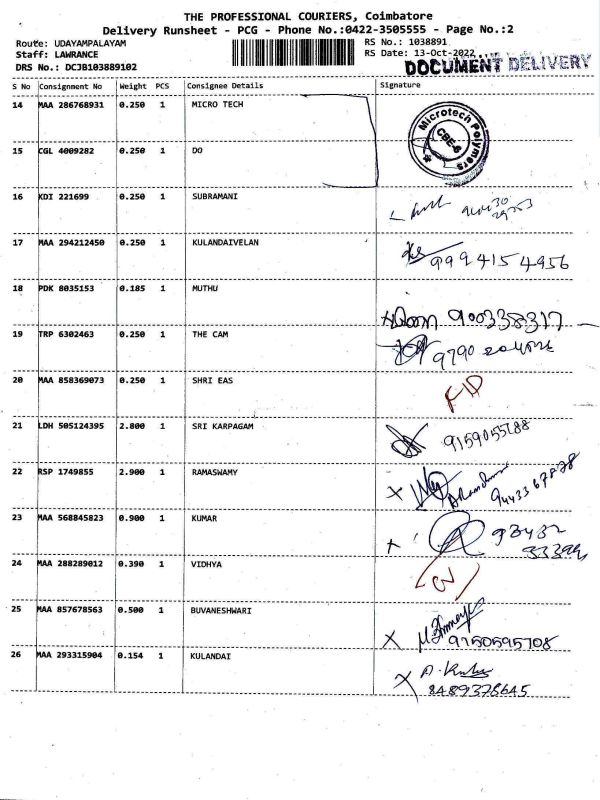 THE PROFESSIONAL COURIERS, Coimbatore
Delivery Runsheet - PCG - Phone No.:0422-3505555 - Page No.:2
Route: UDAYAMPALAYAM RS No.: 1038891
Staff: LAWRANCE RS Date: 13-Oct-2022
DRS No.: DCJB103889102 DOCUMENT DELIVERY
S No Consignment No Weight PCS Consignee Details Signature
14 MAA 286768931 0.250 1 MICRO TECH
Microtech Polymers
15 CGL 4009282 0.250 1 DO
16 KDI 221699 0.250 1 SUBRAMANI
17 MAA 294212450 0.250 1 KULANDAIVELAN
9994154956
18 PDK 8035153 0.185 1 MUTHU
900338317
19 TRP 6302463 0.250 1 THE CAM
9790
20 MAA 858369073 0.250 1 SHRI EAS
21 LDH 505124395 2.800 1 SRI KARPAGAM
22 RSP 1749855 2.900 1 RAMASWAMY
9443367878
23 MAA 568845823 0.900 1 KUMAR
24 MAA 288289012 0.390 1 VIDHYA
25 MAA 857678563 0.500 1 BUVANESHWARI
9150595708
26 MAA 293315904 0.154 1 KULANDAI
8489378645